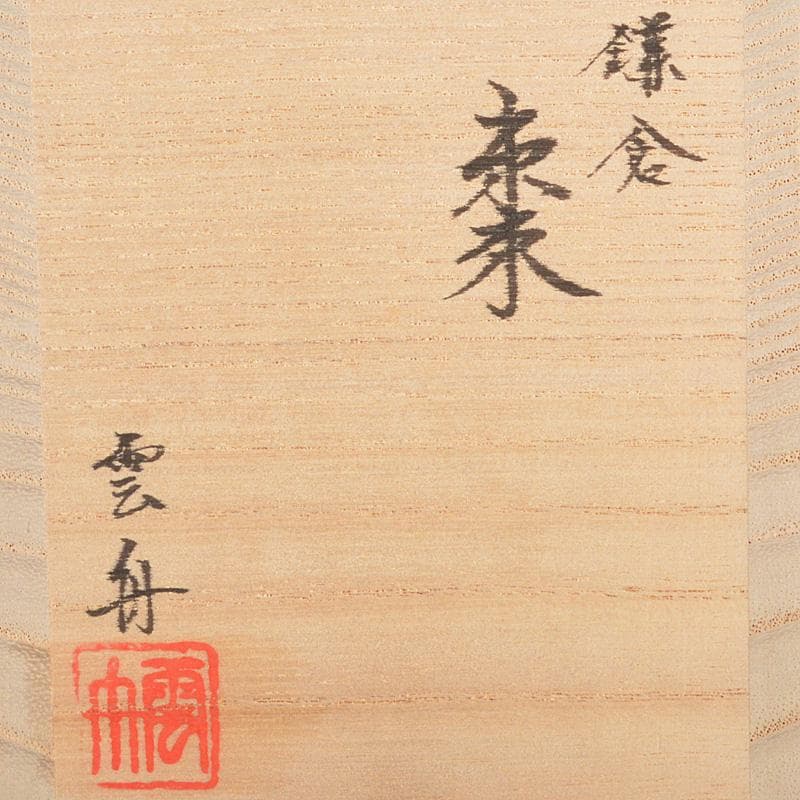 鎌倉
棗
雲舟
雲舟